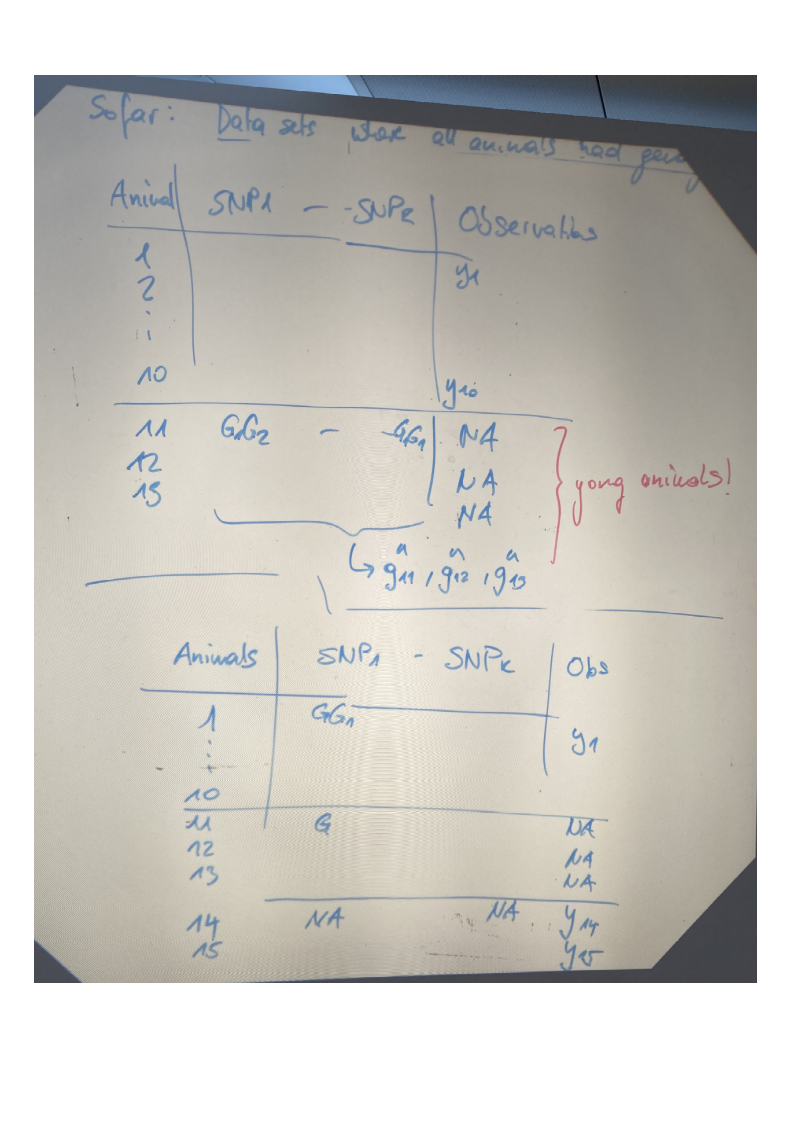 Sofar: Data sets where all animals had
Animal SNP1 - - SNPk Observations
1 y1
2
⋮
10 y10
11 G1G2 - - G1G1 NA
12 NA
13 NA
yong animals!
↳ ĝ11, ĝ12, ĝ13
Animals SNP1 - SNPk Obs
1 GG1 y1
⋮
10
11 G NA
12 NA
13 NA
14 NA NA y14
15 y15